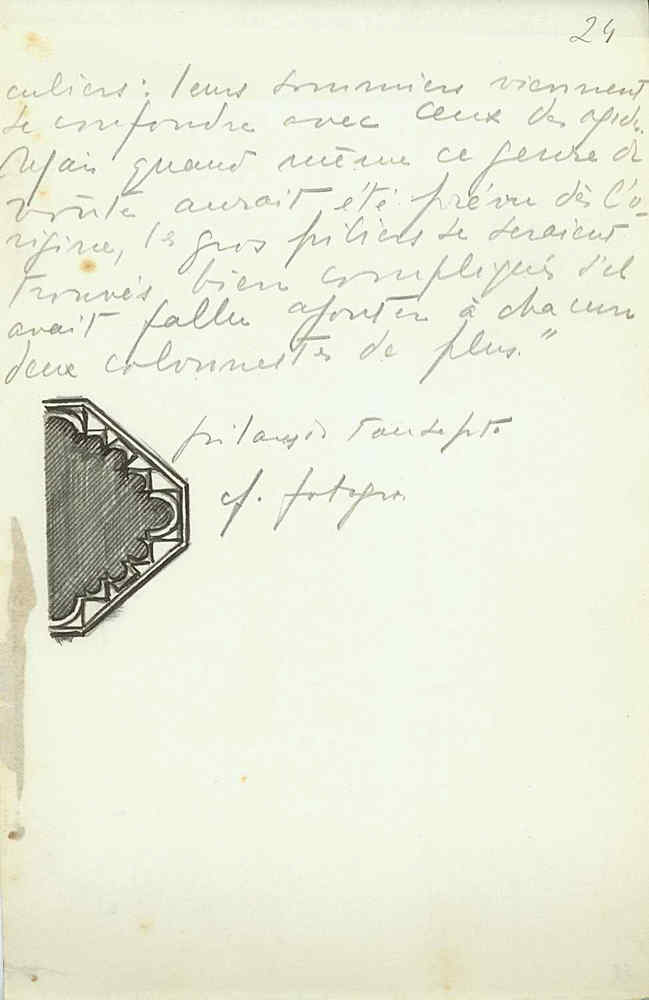 24
culiers: leurs sommiers viennent
se confondre avec ceux des
Mais quand même ce genre de
voûte aurait été prévu dès l'o-
rigine, les gros piliers se seraient
trouvés bien compliqués s'il
avait fallu ajouter à chacun
deux colonnettes de plus."
cf. fotogr.